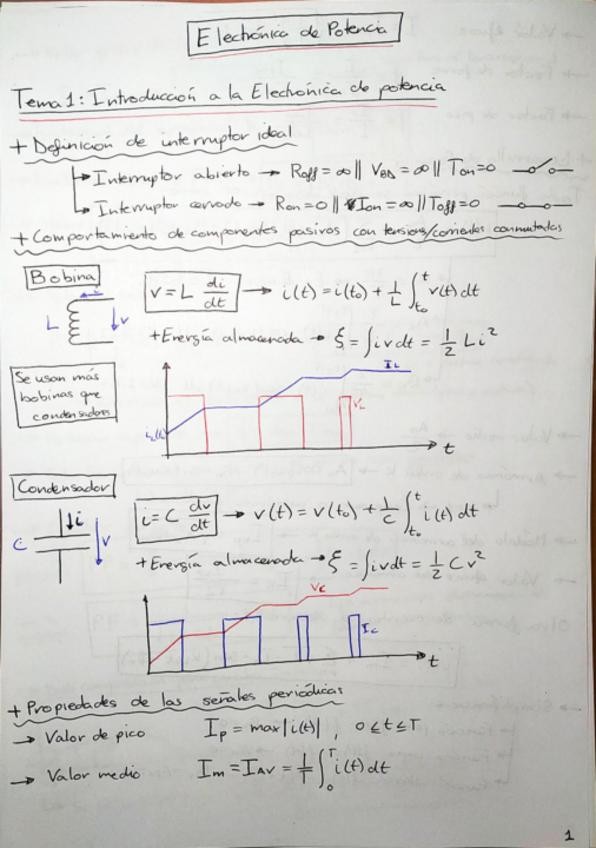 Electrónica de Potencia
Tema 1: Introducción a la Electrónica de potencia
+ Definición de interruptor ideal
→ Interruptor abierto → Roff = ∞ || VBD = ∞ || Ton = 0
→ Interruptor cerrado → Ron = 0 || Ion = ∞ || Toff = 0
+ Comportamiento de componentes pasivos con tensiones/corrientes conmutadas
Bobina
v = L di/dt → i(t) = i(t₀) + 1/L ∫ₜ₀ᵗ v(t) dt
L
v
+ Energía almacenada → ξ = ∫ i v dt = 1/2 L i²
Se usan más
bobinas que
condensadores
IL
VL
t
Condensador
i = C dv/dt → v(t) = v(t₀) + 1/C ∫ₜ₀ᵗ i(t) dt
i
C
v
+ Energía almacenada → ξ = ∫ i v dt = 1/2 C v²
Vc
Ic
t
+ Propiedades de las señales periódicas
→ Valor de pico Ip = max|i(t)| , 0 ≤ t ≤ T
→ Valor medio Im = IAV = 1/T ∫₀ᵀ i(t) dt
1